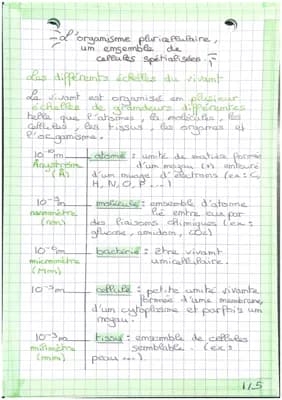 L'organisme pluricellulaire,
un ensemble de
cellules spécialisées.
Les différents échelles du vivant
Le vivant est organisé en plusieurs
échelles de grandeurs différentes
telle que l'atomes, les molécules, les
cellules, les tissus, les organes et
l'organisme.
10⁻¹⁰m atome : unité de matière formé
Angströme d'un noyau (+) entouré
(Å) d'un nuage d'électrons (ex : C,
H, N, O, P ...)
10⁻⁹m molécule : ensemble d'atome
nanomètre lié entre eux par
(nm) des liaisons chimiques (ex :
glucose, amidon, CO₂)
10⁻⁶m bactérie : être vivant
micromètre unicellulaire.
(Mm)
10⁻⁵m cellule : petite unité vivante
formée d'une membrane,
d'un cytoplasme et parfois un
noyau.
10⁻³m tissus : ensemble de cellules
milimètre semblable. (ex :
(mm) peau ...)
1/5